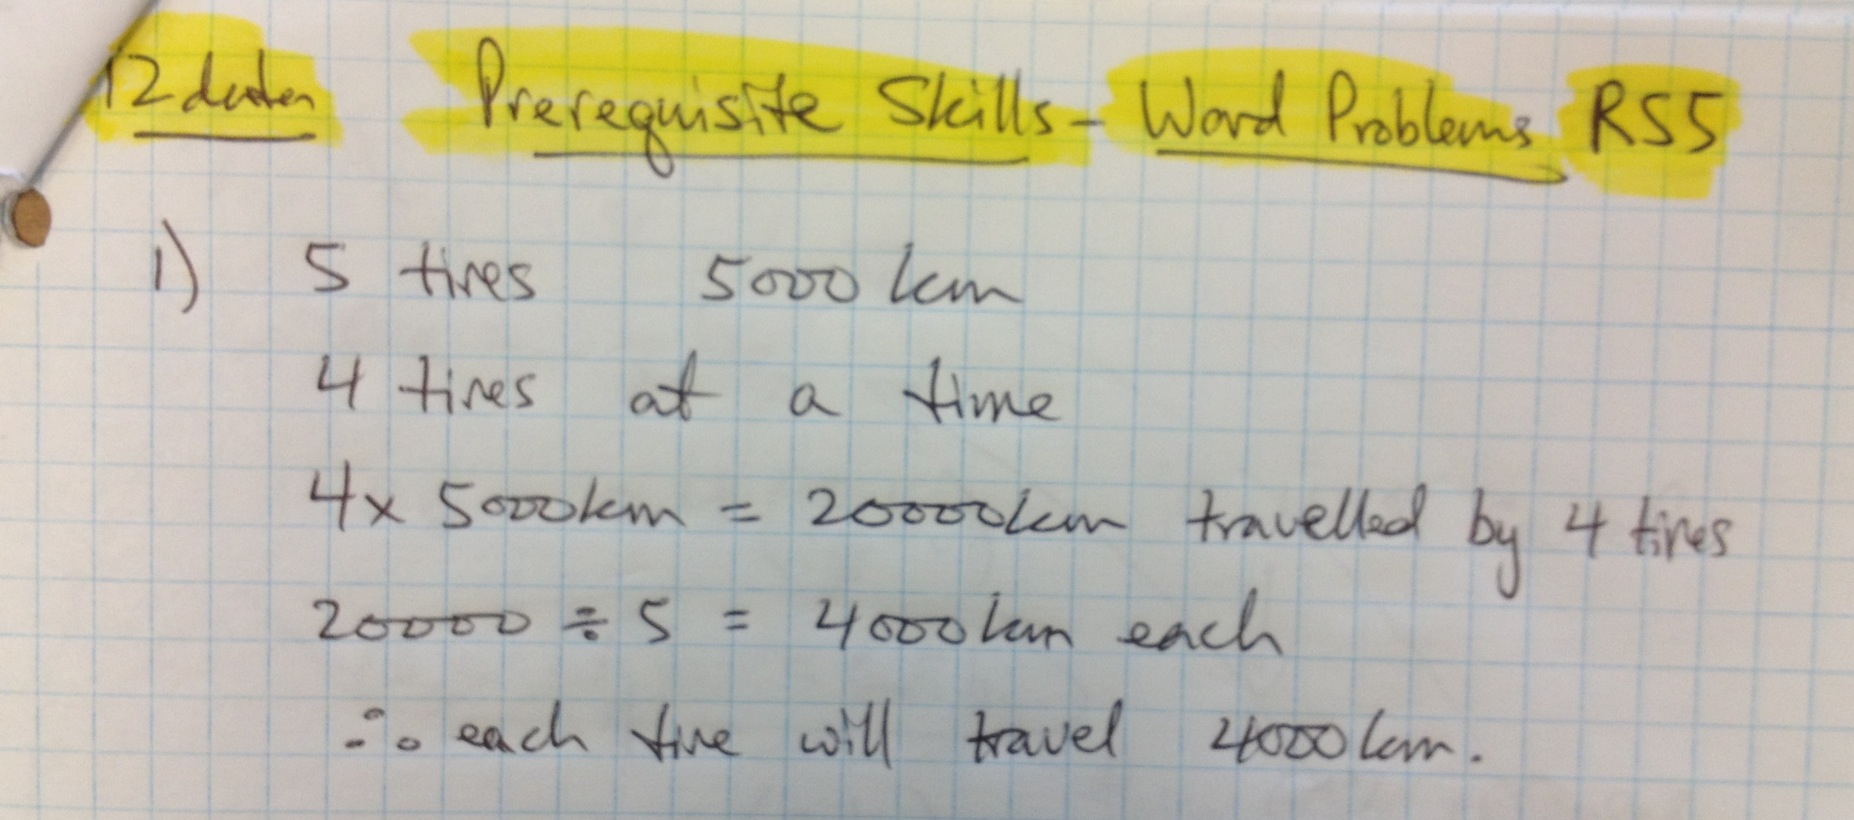 12 data Prerequisite Skills - Word Problems RS5
1) 5 tires 5000 km
4 tires at a time
4 x 5000 km = 20000 km travelled by 4 tires
20000 ÷ 5 = 4000 km each
∴ each tire will travel 4000 km.